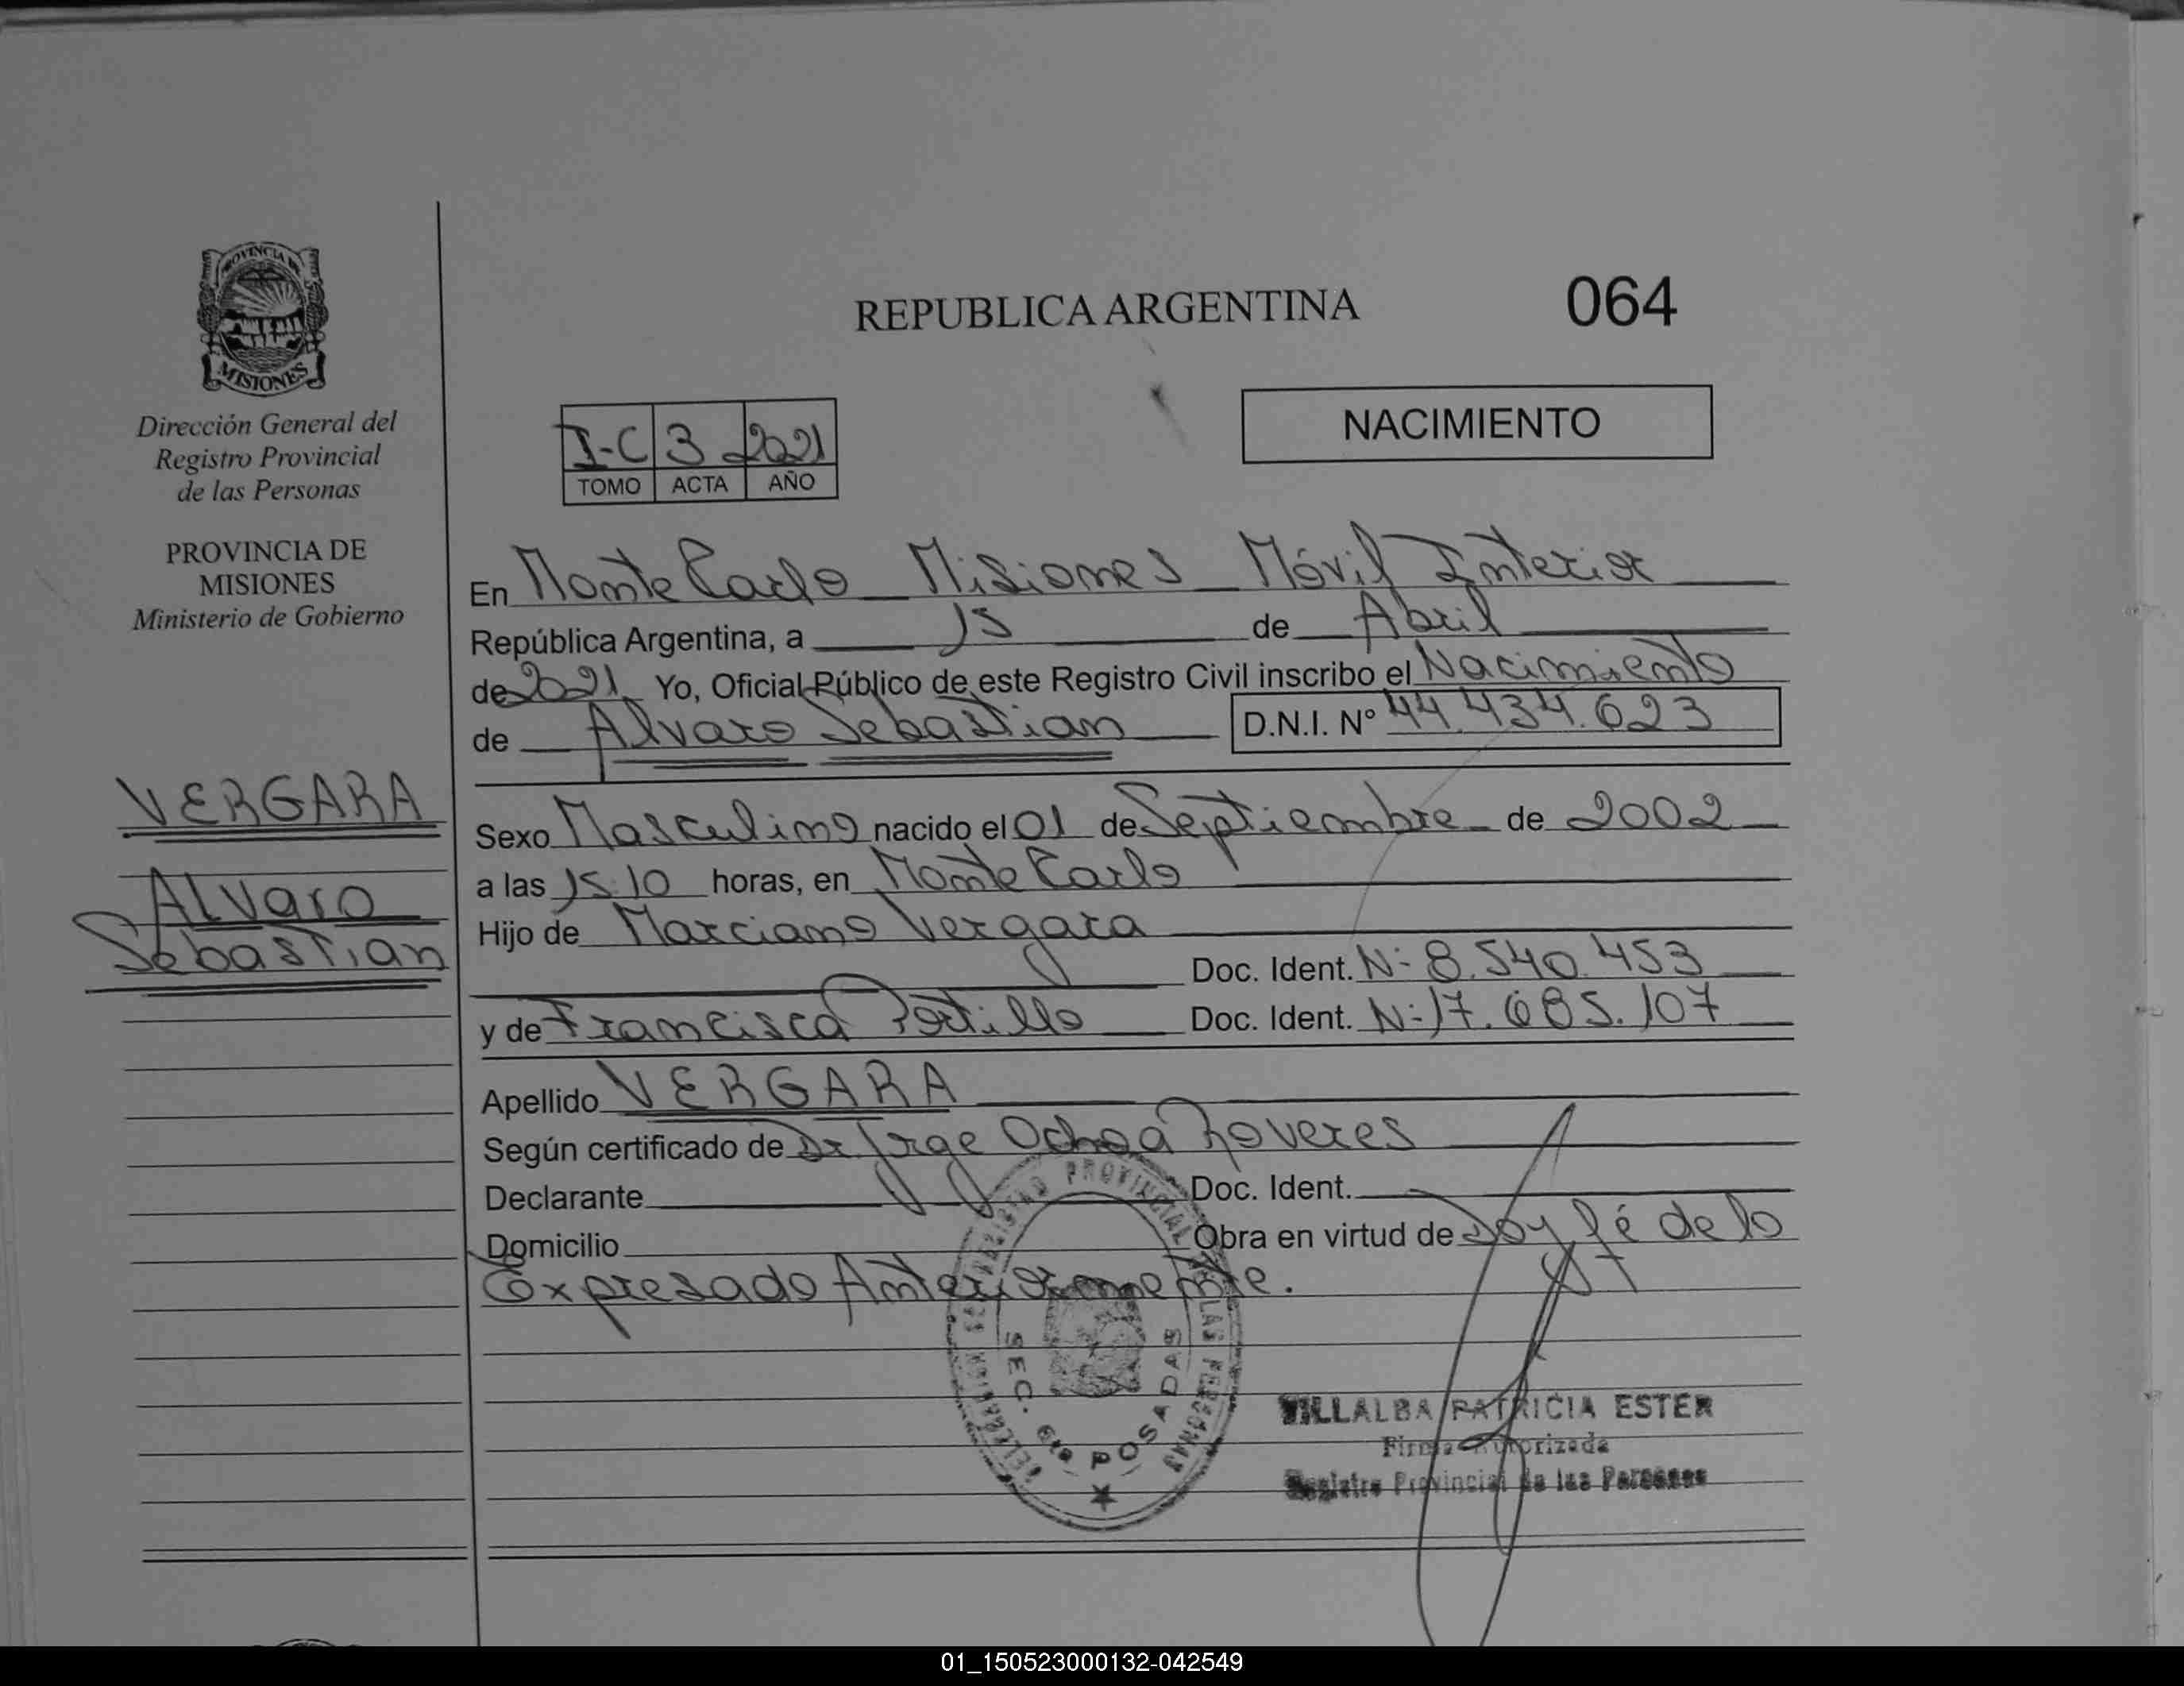 PROVINCIA DE
MISIONES
Dirección General del
Registro Provincial
de las Personas
PROVINCIA DE
MISIONES
Ministerio de Gobierno
VERGARA
Alvaro
Sebastian
REPUBLICA ARGENTINA
064
I-C 3 2021
TOMO ACTA AÑO
NACIMIENTO
En Monte Carlo Misiones Móvil Interior
República Argentina, a 15 de Abril
de 2021 Yo, Oficial Público de este Registro Civil inscribo el Nacimiento
de Alvaro Sebastian D.N.I. Nº 44.434.623
Sexo Masculino nacido el 01 de Septiembre de 2002
a las 15:10 horas, en Monte Carlo
Hijo de Marciano Vergara
Doc. Ident. Nº 8.540.453
y de Francisca Portillo Doc. Ident. Nº 17.685.107
Apellido VERGARA
Según certificado de Dr. Jorge Ochoa Roveres
Declarante Doc. Ident.
Domicilio Obra en virtud de Doy fé de lo
Expresado Anteriormente.
SEC. 6ta POSADAS
VILLALBA PATRICIA ESTER
Firma Autorizada
Registro Provincial de las Personas
01_150523000132-042549